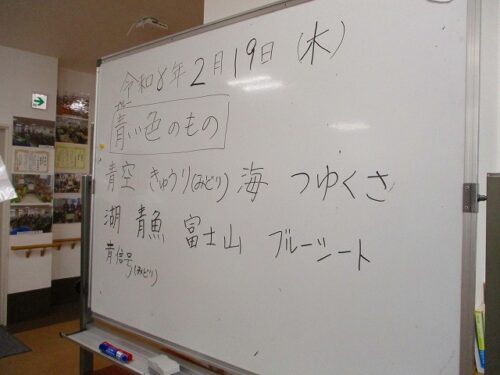 令和8年2月19日(木)
青い色のもの
青空 きゅうり(みどり) 海 つゆくさ
湖 青魚 富士山 ブルーシート
青信号(みどり)